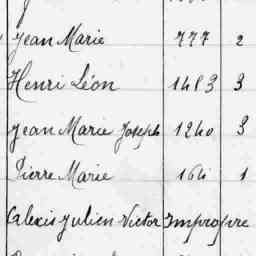 Jean Marie 777 2
Henri Léon 1483 3
Jean Marie Joseph 1240 3
Pierre Marie 164 1
Alexis Julien Victor Impropre